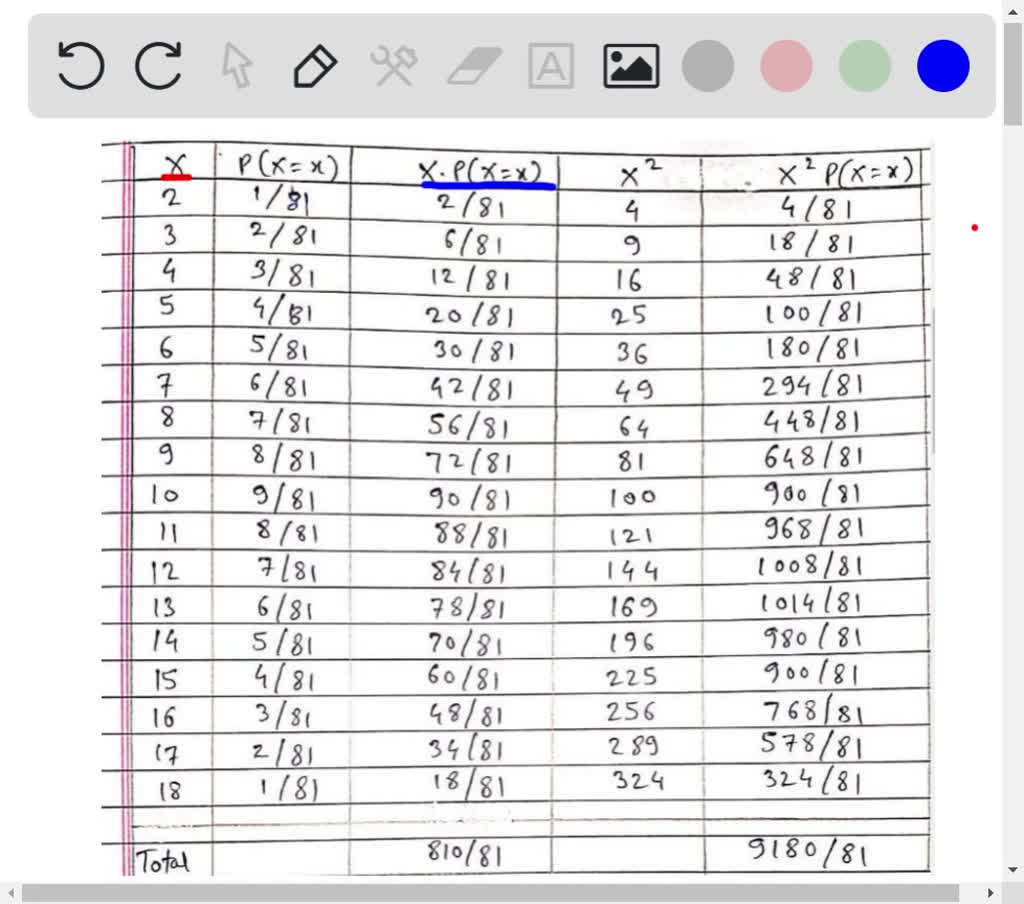 A
X P(X=x) X·P(X=x) X² X² P(X=x)
2 1/81 2/81 4 4/81
3 2/81 6/81 9 18/81
4 3/81 12/81 16 48/81
5 4/81 20/81 25 100/81
6 5/81 30/81 36 180/81
7 6/81 42/81 49 294/81
8 7/81 56/81 64 448/81
9 8/81 72/81 81 648/81
10 9/81 90/81 100 900/81
11 8/81 88/81 121 968/81
12 7/81 84/81 144 1008/81
13 6/81 78/81 169 1014/81
14 5/81 70/81 196 980/81
15 4/81 60/81 225 900/81
16 3/81 48/81 256 768/81
17 2/81 34/81 289 578/81
18 1/81 18/81 324 324/81
Total 810/81 9180/81